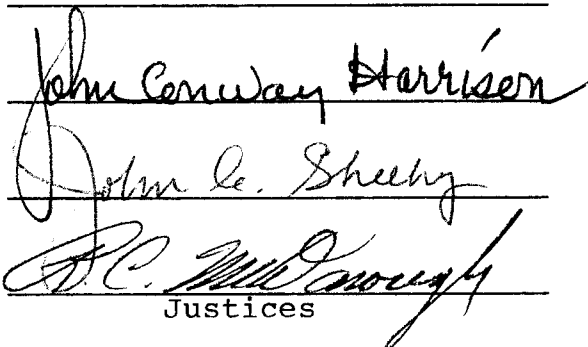 John Conway Harrison
John C. Sheehy
R.C. McDonough
Justices